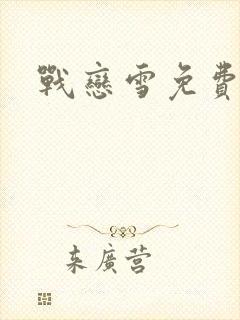 戰戀雪免費
来廣营